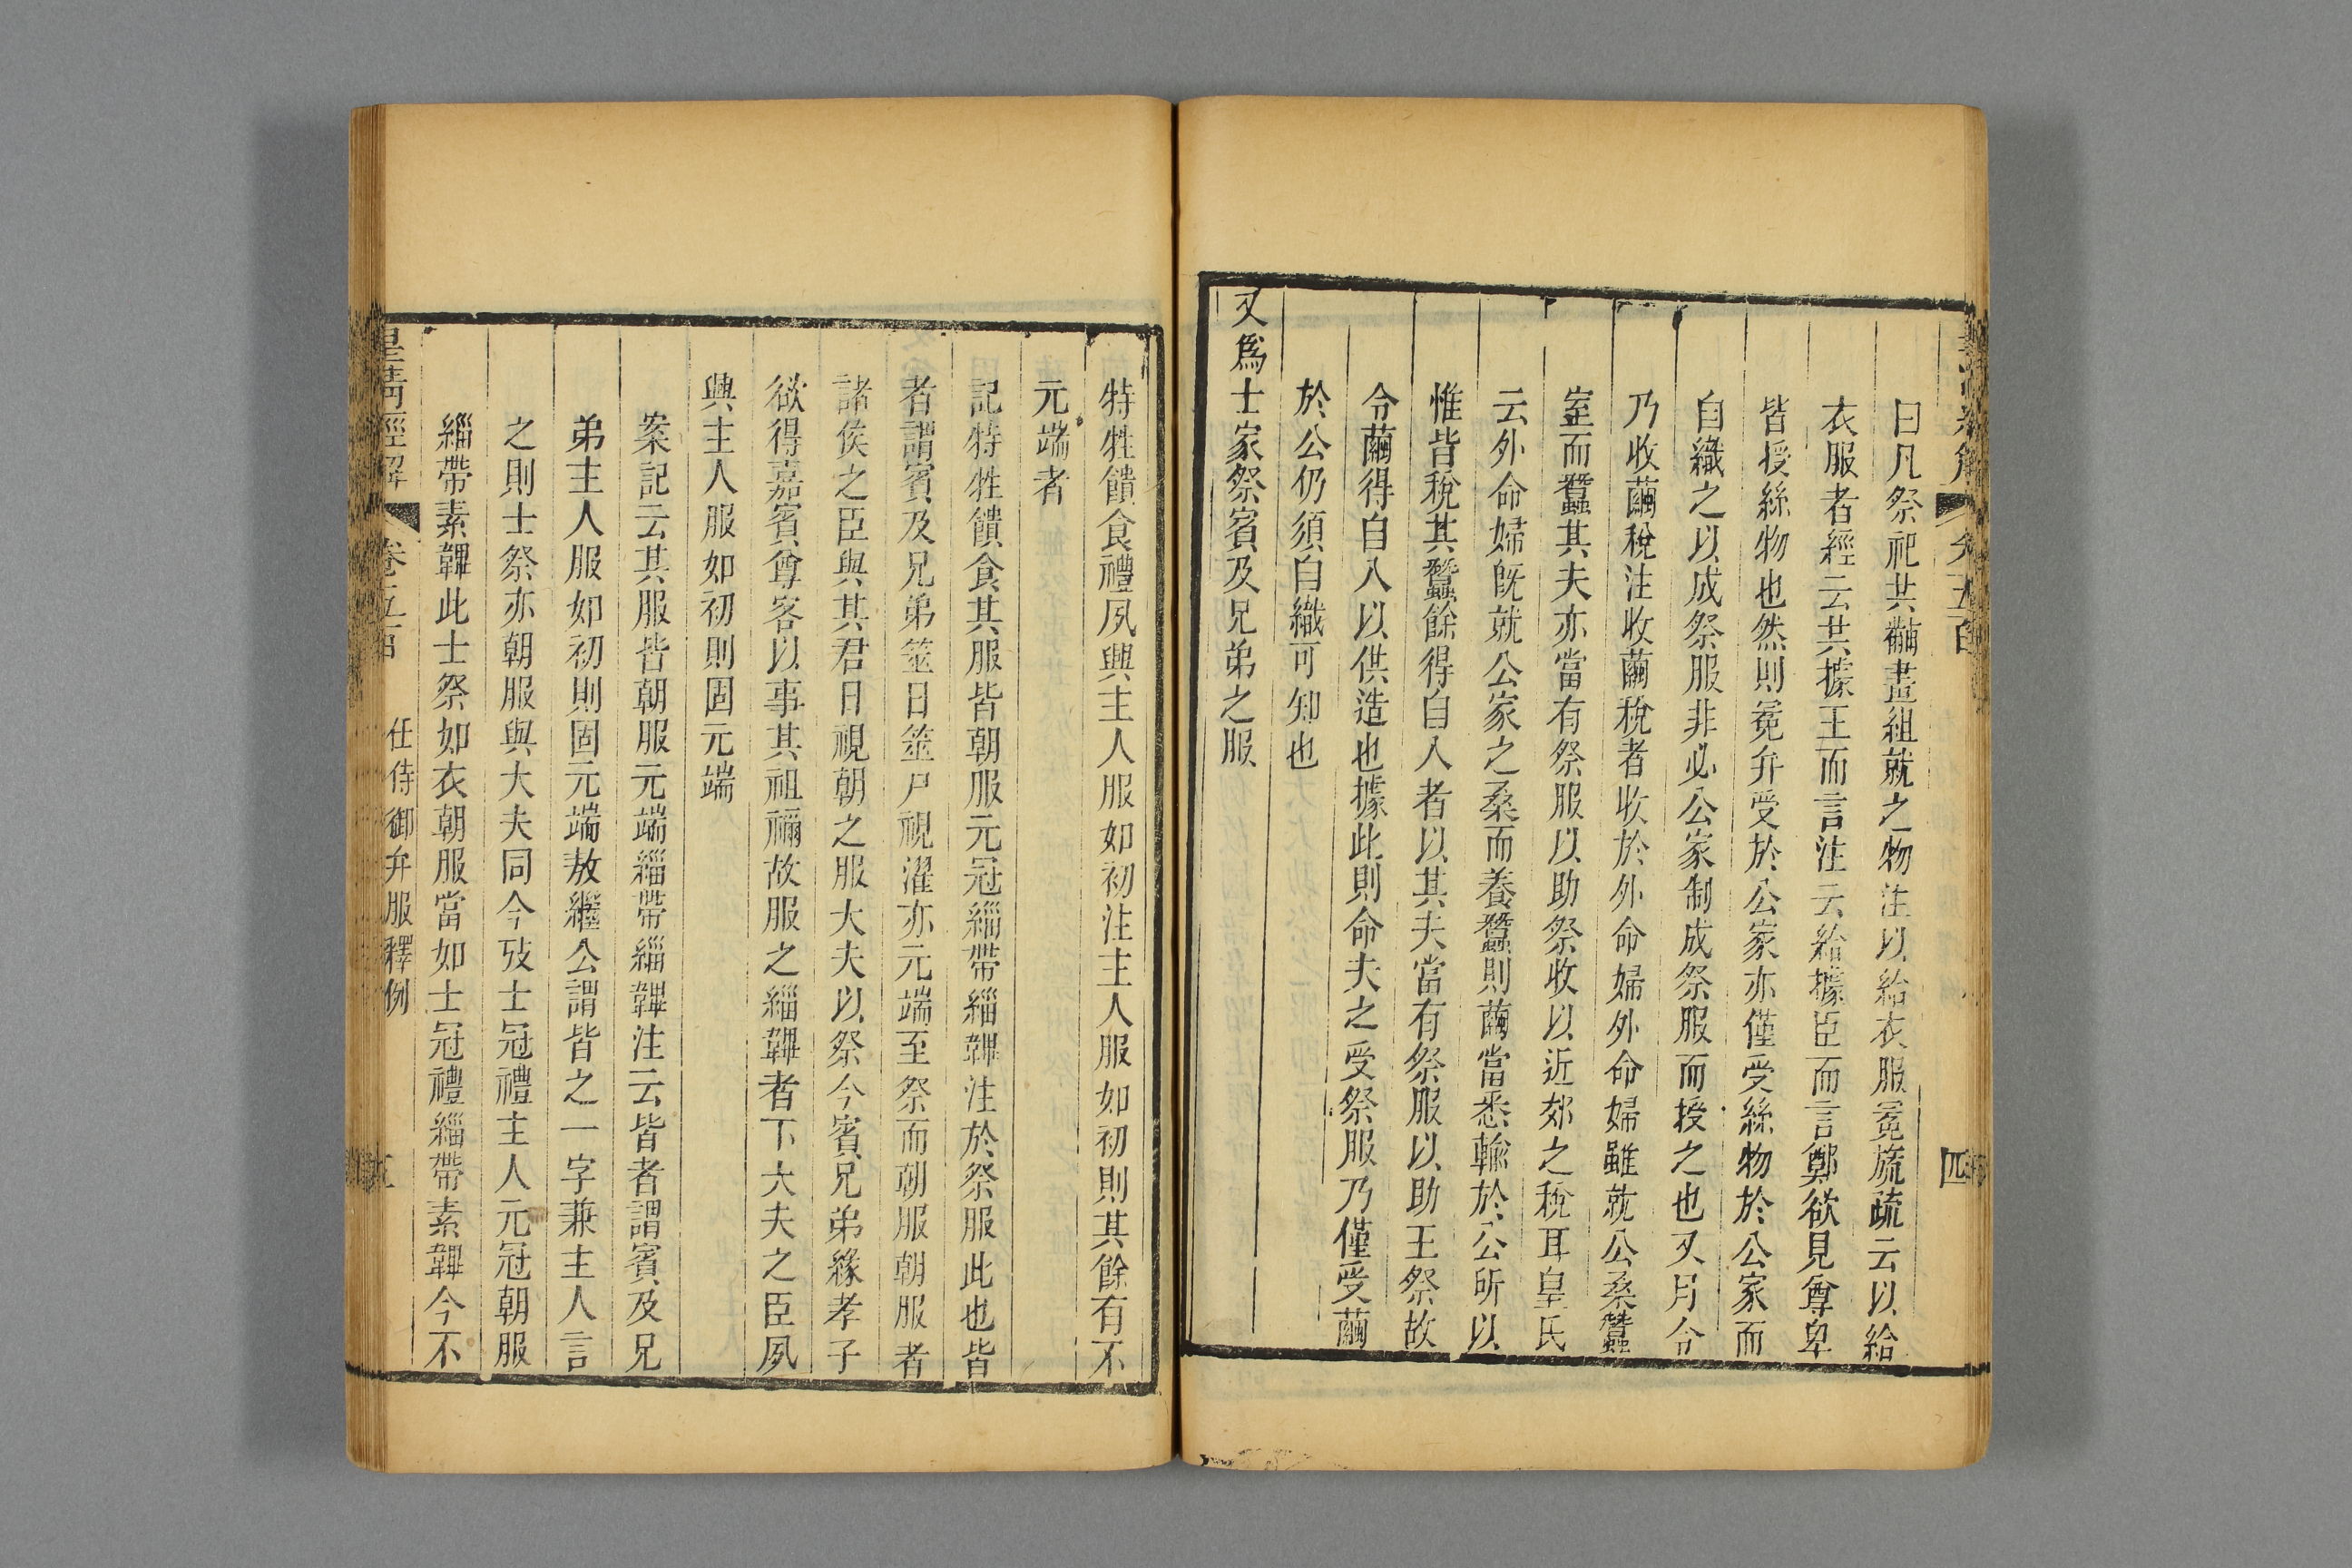 曰凡祭祀共黼畫組就之物注以給衣服冕旒疏云以給
衣服者經云共據王而言注云給據臣而言鄭欲見尊卑
皆授絲物也然則冕弁受於公家亦僅受絲物於公家而
自織之以成祭服非必公家制成祭服而授之也又月令
乃收繭稅注收繭稅者收於外命婦外命婦雖就公桑蠶
室而蠶其夫亦當有祭服以助祭收以近郊之稅耳皇氏
云外命婦旣就公家之桑而養蠶則繭當悉輸於公所以
惟皆稅其蠶餘得自入者以其夫當有祭服以助王祭故
令繭得自入以供造也據此則命夫之受祭服乃僅受繭
於公仍須自織可知也
又爲士家祭賓及兄弟之服
四
特牲饋食禮夙興主人服如初注主人服如初則其餘有不
元端者
記特牲饋食其服皆朝服元冠緇帶緇韠注於祭服此也皆
者謂賓及兄弟筮日筮尸視濯亦元端至祭而朝服朝服者
諸侯之臣與其君日視朝之服大夫以祭今賓兄弟緣孝子
欲得嘉賓尊客以事其祖禰故服之緇韠者下大夫之臣夙
興主人服如初則固元端
案記云其服皆朝服元端緇帶緇韠注云皆者謂賓及兄
弟主人服如初則固元端敖繼公謂皆之一字兼主人言
之則士祭亦朝服與大夫同今攷士冠禮主人元冠朝服
緇帶素韠此士祭如衣朝服當如士冠禮緇帶素韠今不
皇清經解
卷五百
任侍御弁服釋例